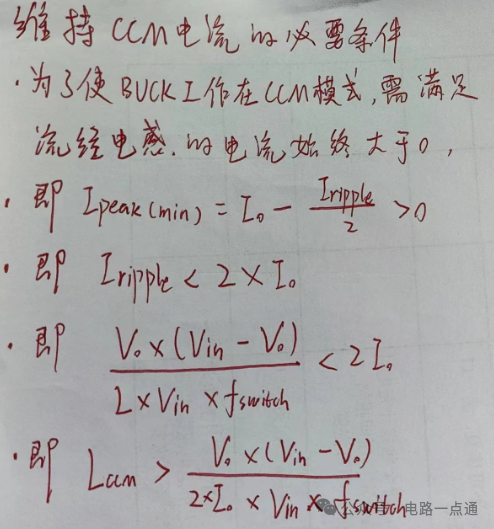 维持CCM电流的必要条件
·为了使BUCK工作在CCM模式,需满足
流经电感.的电流始终大于0,
·即 Ipeak(min) = Io - Iripple/2 >0
·即 Iripple < 2×Io
·即 Vo×(Vin-Vo)/L×Vin×fswitch < 2Io
·即 Lccm > Vo×(Vin-Vo)/2×Io×Vin×fswitch
公众号·电路一点通